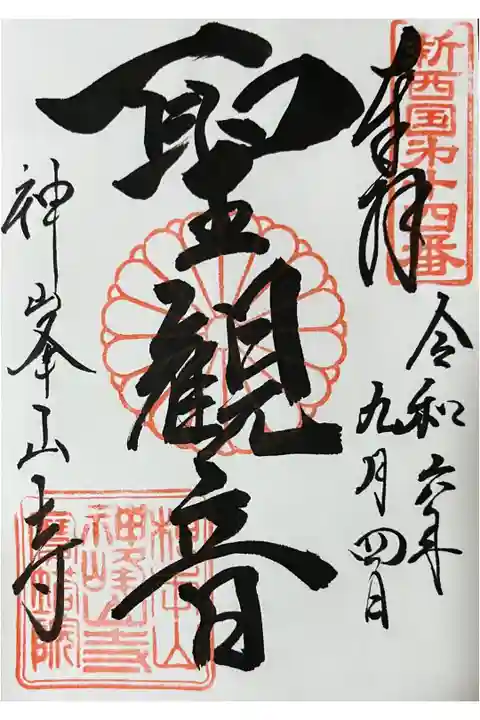 新西国第十四番
奉拝
令和六年
九月四日
聖観音
神峯山寺